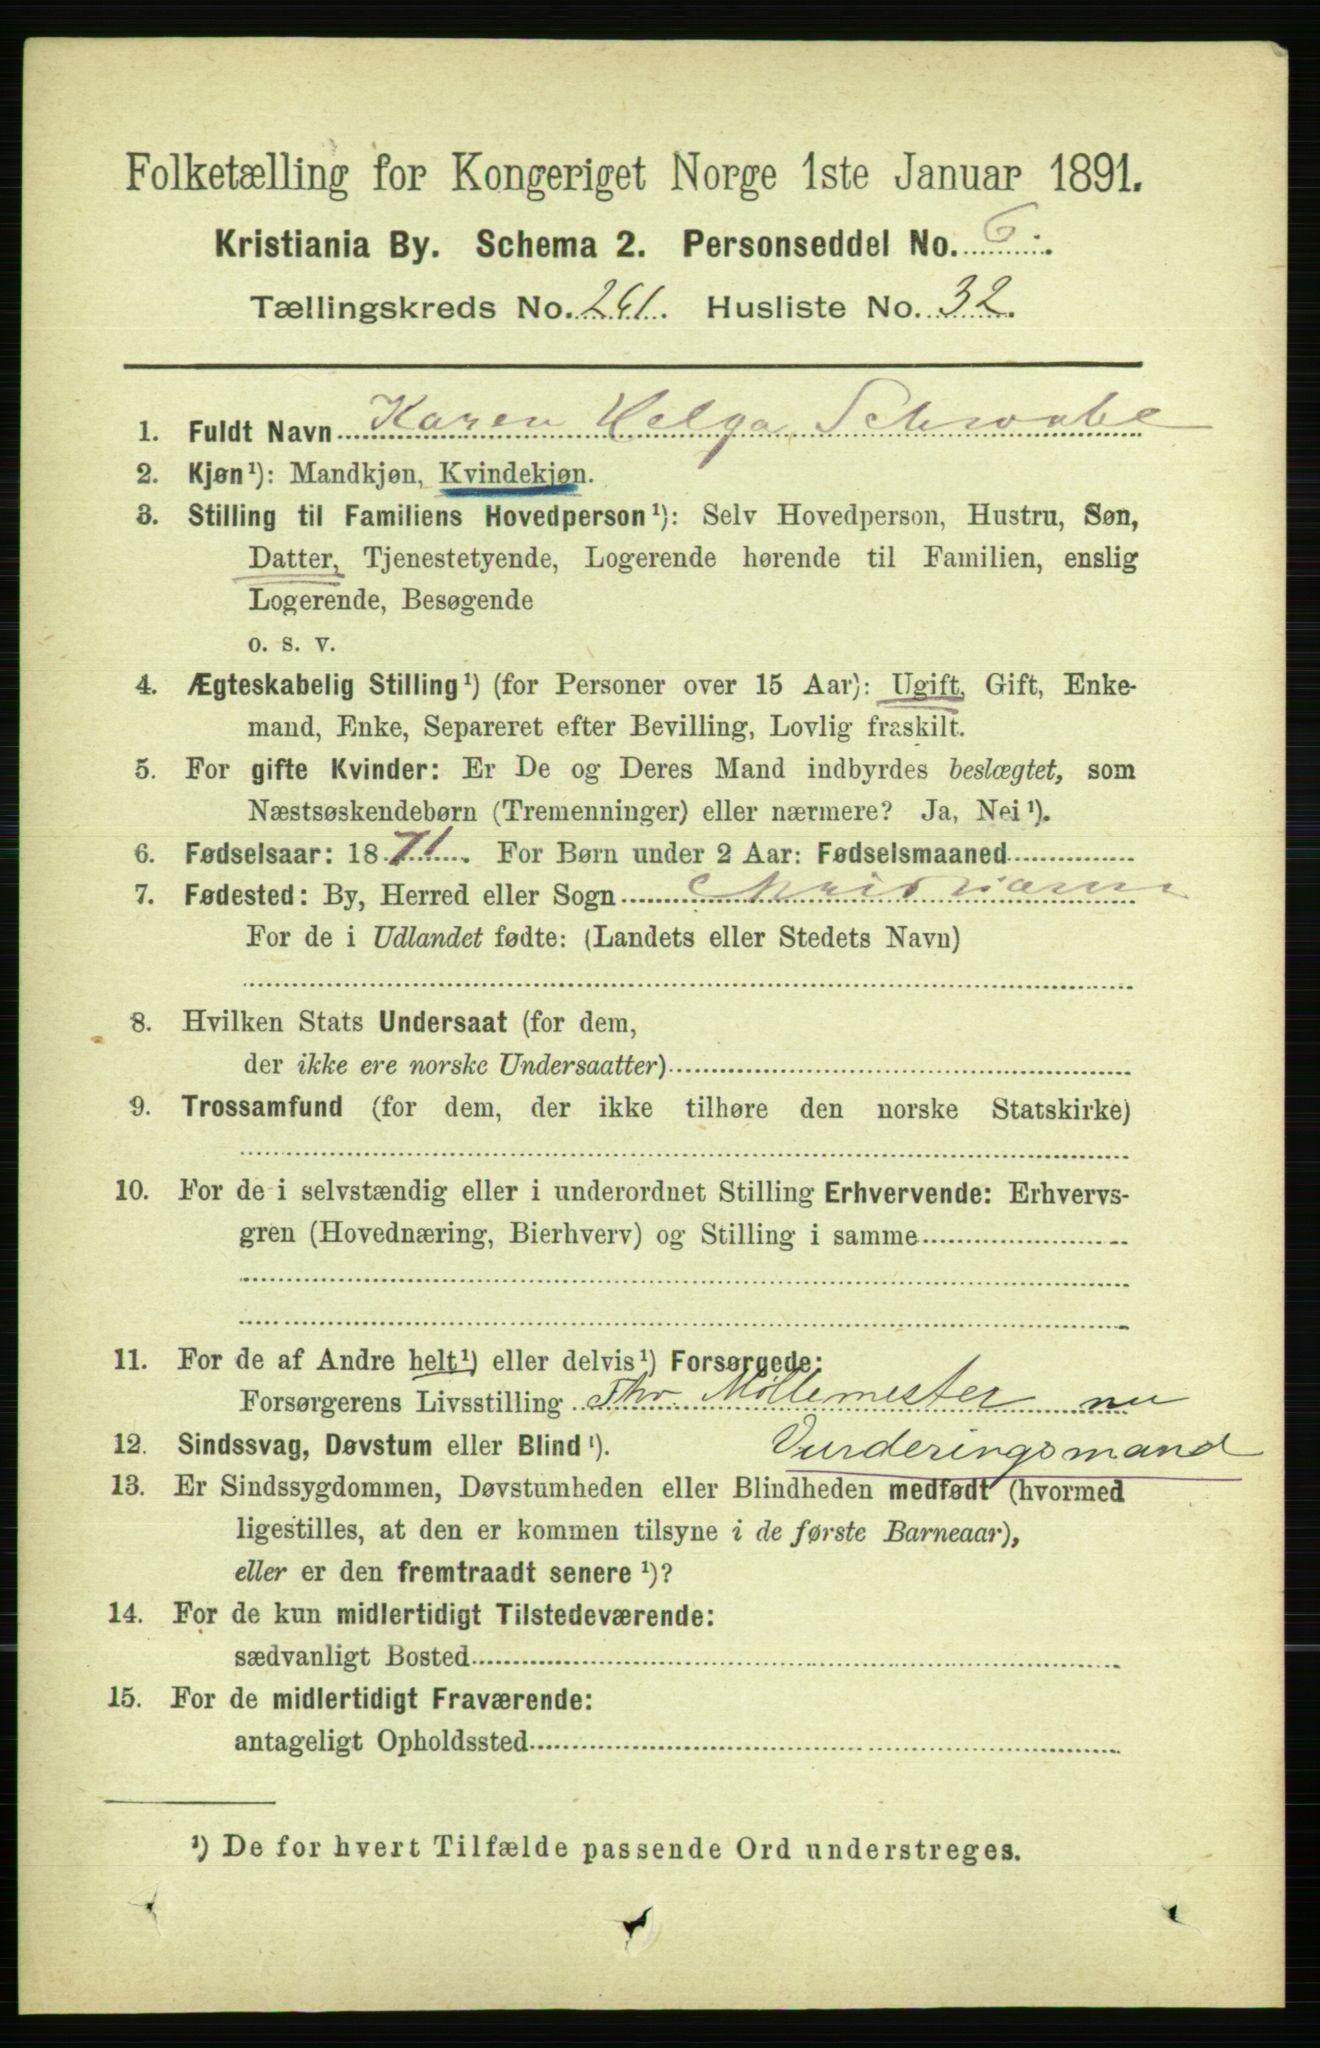 Folketælling for Kongeriget Norge 1ste Januar 1891.
Kristiania By. Schema 2. Personseddel No. 6.
Tællingskreds No. 261. Husliste No. 32.
1. Fuldt Navn Karen Helga Schwabe
2. Kjøn¹): Mandkjøn, Kvindekjøn.
3. Stilling til Familiens Hovedperson¹): Selv Hovedperson, Hustru, Søn,
Datter, Tjenestetyende, Logerende hørende til Familien, enslig
Logerende, Besøgende
o. s. v.
4. Ægteskabelig Stilling¹) (for Personer over 15 Aar): Ugift, Gift, Enke-
mand, Enke, Separeret efter Bevilling, Lovlig fraskilt.
5. For gifte Kvinder: Er De og Deres Mand indbyrdes beslægtet, som
Næstsøskendebørn (Tremenninger) eller nærmere? Ja, Nei¹).
6. Fødselsaar: 1871. For Børn under 2 Aar: Fødselsmaaned
7. Fødested: By, Herred eller Sogn Christiania
For de i Udlandet fødte: (Landets eller Stedets Navn)
8. Hvilken Stats Undersaat (for dem,
der ikke ere norske Undersaatter)
9. Trossamfund (for dem, der ikke tilhøre den norske Statskirke)
10. For de i selvstændig eller i underordnet Stilling Erhvervende: Erhvervs-
gren (Hovednæring, Bierhverv) og Stilling i samme
11. For de af Andre helt¹) eller delvis¹) Forsørgede:
Forsørgerens Livsstilling Fhv. Møllemester nu
Vurderingsmand
12. Sindssvag, Døvstum eller Blind¹).
13. Er Sindssygdommen, Døvstumheden eller Blindheden medfødt (hvormed
ligestilles, at den er kommen tilsyne i de første Barneaar),
eller er den fremtraadt senere¹)?
14. For de kun midlertidigt Tilstedeværende:
sædvanligt Bosted
15. For de midlertidigt Fraværende:
antageligt Opholdssted
¹) De for hvert Tilfælde passende Ord understreges.